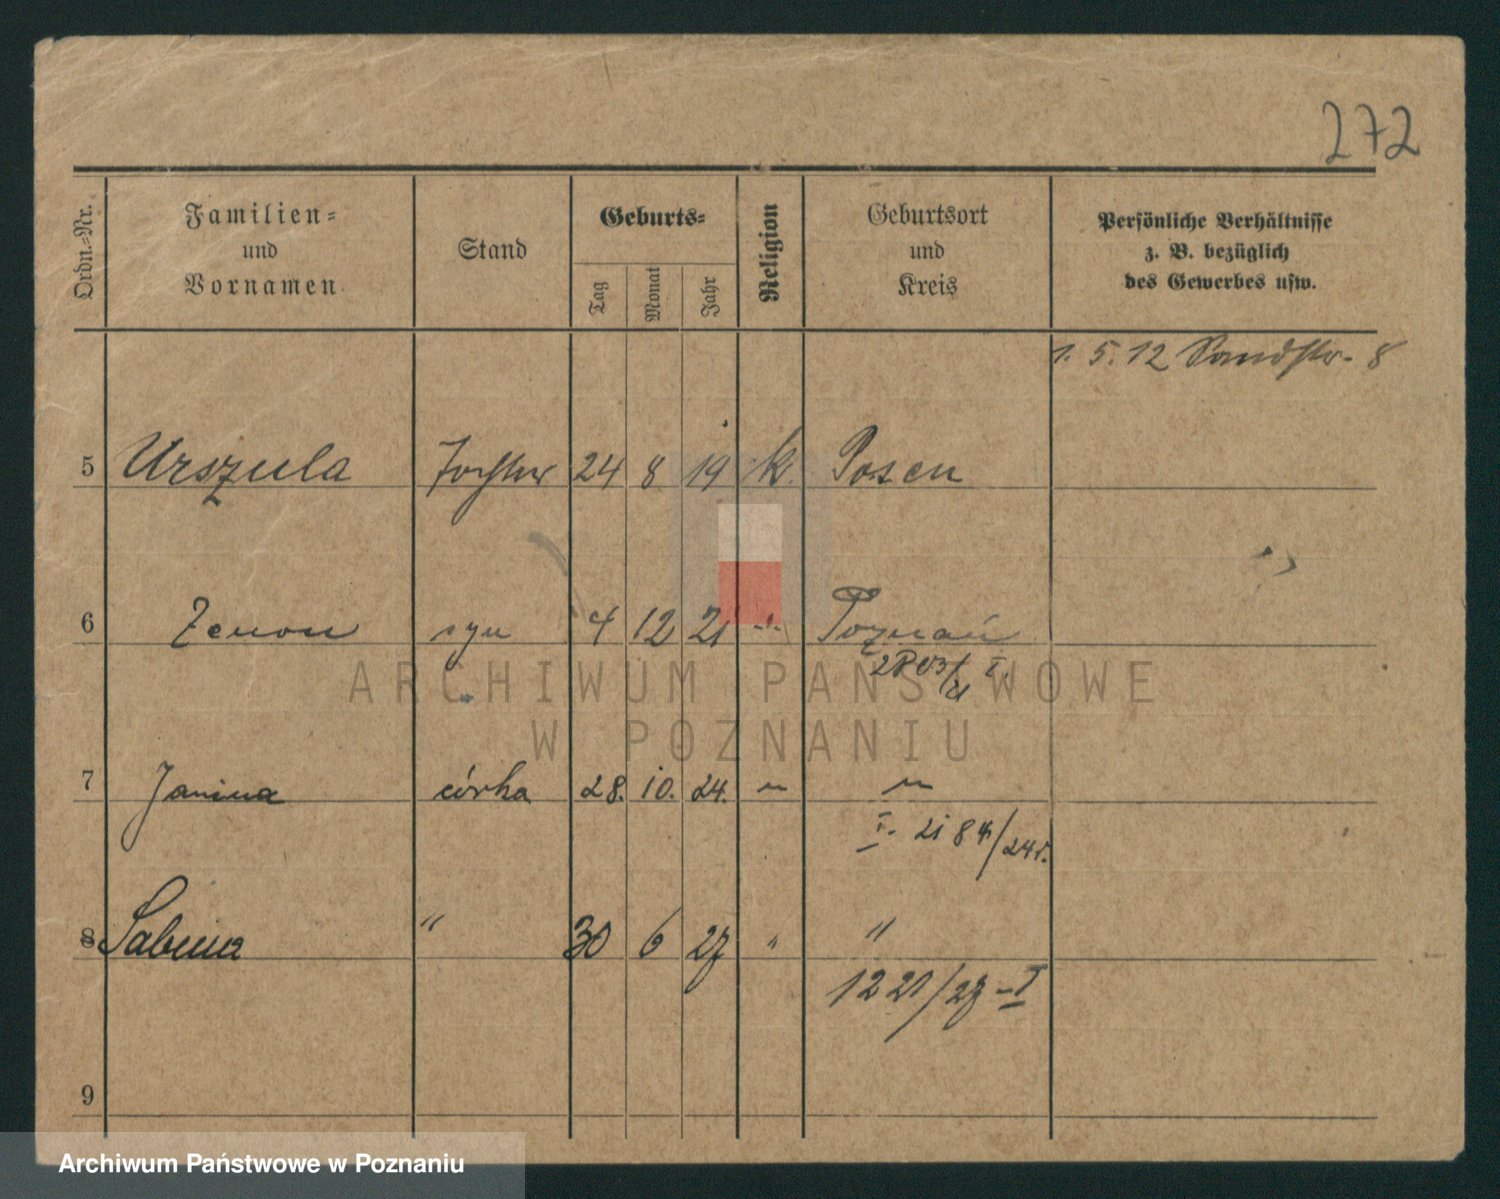 272
Ordn.-Nr. Familien- und Vornamen Stand Geburts- Tag Monat Jahr Religion Geburtsort und Kreis Persönliche Verhältnisse z. B. bezüglich des Gewerbes usw.
1. 5. 12 Sandstr. 8
5 Urszula Tochter 24 8 19 k. Posen
6 Zenon syn 4 12 21 -"- Poznań
I.
ARCHIWUM PAŃSTWOWE
W POZNANIU
7 Janina córka 28. 10. 24. " "
I. 21 84/24r.
8 Sabina " 30 6 27 " "
1221/27 - I
9
Archiwum Państwowe w Poznaniu